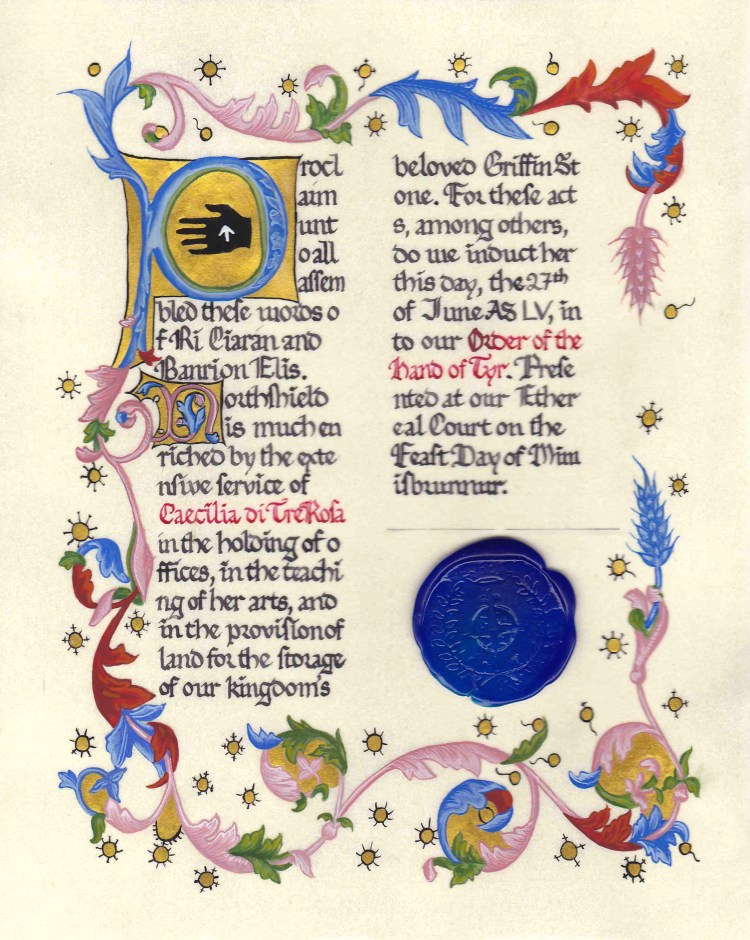 Procl
aim
unt
o all
aſſem
bled theſe words o
f Ri Ciaran and
Banrion Elis.
Northſhield
is much en
riched by the exte
nſive ſervice of
Caecilia di Tre Roſa
in the holding of o
ffices, in the teachi
ng of her arts, and
in the proviſion of
land for the ſtorage
of our kingdom's
beloved Griffin St
one. For theſe act
s, among others,
do we induct her
this day, the 27th
of June AS LV, in
to our Order of the
Hand of Tyr. Preſe
nted at our Ether
eal Court on the
Feaſt Day of Mim
isbrunnur.